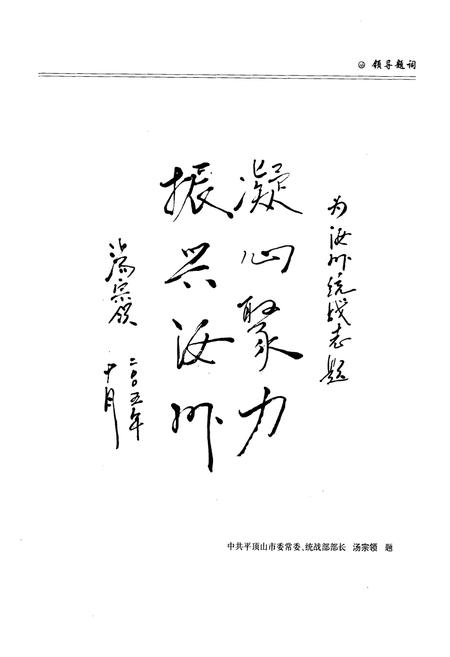 ◎ 领导题词
为汝州统战志题
凝心聚力
振兴汝州
汤宗领
二〇〇五年
十月
中共平顶山市委常委、统战部部长 汤宗领 题